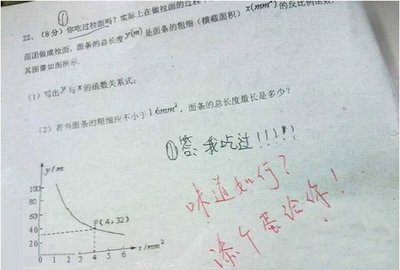 ①
22.(8分)你吃过拉面吗?实际上在做拉面的过程
面团做成拉面,面条的总长度y(m)是面条的粗细(横截面积)x(mm²)的反比例函数,
其图像如图所示.
(1)写出y与x的函数关系式;
(2)若当面条的粗细应不小于1.6mm²,面条的总长度最长是多少?
①答:我吃过!!!!!
味道如何?
添个蛋给你!
y/m
100
80
60
40
20
P(4,32)
0 1 2 3 4 5 6 x/mm²